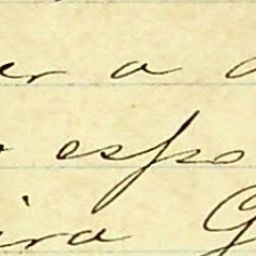 er a
espo
ira G